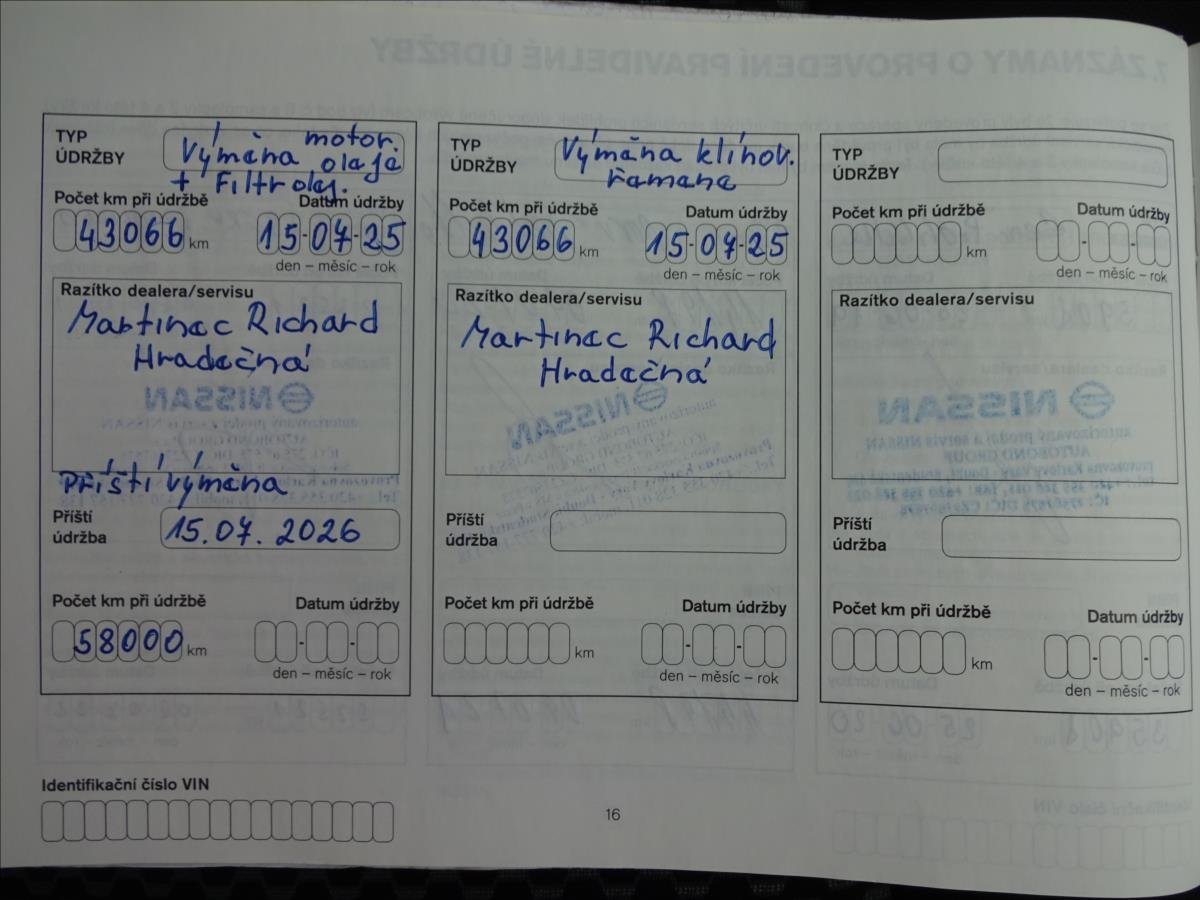 TYP
ÚDRŽBY
Výměna motor.
oleje
+ Filtr olej.
Počet km při údržbě
Datum údržby
43066 km
15-07-25
den – měsíc – rok
Razítko dealera/servisu
Martinec Richard
Hradečná
Příští výměna
Příští
údržba
15.07.2026
Počet km při údržbě
Datum údržby
58000 km
den – měsíc – rok
TYP
ÚDRŽBY
Výměna klínov.
řemene
Počet km při údržbě
Datum údržby
43066 km
15-07-25
den – měsíc – rok
Razítko dealera/servisu
Martinec Richard
Hradečná
NISSAN
Příští
údržba
Počet km při údržbě
Datum údržby
km
den – měsíc – rok
TYP
ÚDRŽBY
Počet km při údržbě
Datum údržby
km
den – měsíc – rok
Razítko dealera/servisu
NISSAN
Příští
údržba
Počet km při údržbě
Datum údržby
km
den – měsíc – rok
Identifikační číslo VIN
16